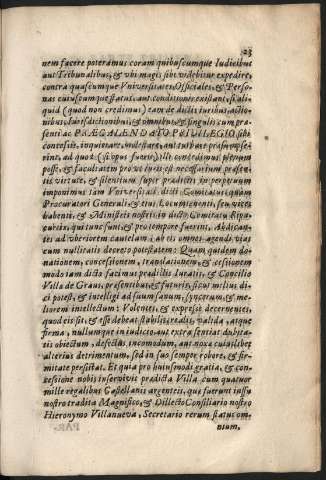 23
nem facere poteramus coram quibuscumque Iudicibus
aut Tribunalibus, & vbi magis sibi videbitur expedire,
contra quascumque Vniversitates, Officiales, & Perso-
nas cuiuscumque status, aut conditionis existant, si ali-
quid (quod non credimus) eam de dictis iuribus, actio-
nibus, iurisdictionibus, & omnibus, & singulis cum præ-
senti ac PRÆGALENDATO PRIVILEGIO sibi
concessis, inquietare, molestare, aut turbare præsumpse-
rint, ad quos (si opus fuerit) illi concedimus plenum
posse, & facultatem pro vt iuris est necessarium præsen-
tis virtute, & silentium super prædictis in perpetuum
imponimus iam Vniversitati dicti Comitatus, quam
Procuratori Generali, & eius Locumtenenti, seu vices
habenti, & Ministris nostris in dicto Comitatu Ripa-
curcix, qui tunc sunt, & pro tempore fuerint, Abdican-
tes ad vberiorem cautelam ab eis omnem agendi viam
cum nullitatis decreto potestatem: Quam quidem do-
nationem, concessionem, translationem, & cessionem
modo iam dicto facimus prædictis Iuratis, & Concilio
Villæ de Graus, præsentibus, & futuris, sicut melius di-
ci potest, & intelligi ad suum sanum, syncerum, & me-
liorem intellectum: Volentes, & expressè decernentes,
quod eis sit, & esse debeat stabilis, realis, valida, atque
firma, nullumque in iudicio, aut extra sentiat dubita-
tis obiectum, defectus incomodum, aut noxæ cuiuslibet
alterius detrimentum, sed in suo semper robore, & fir-
mitate persistat. Et quia pro huiusmodi gratia, & con-
cessione nobis inservivit prædicta Villa cum quatuor
mille regalibus Castellanis argenteis, qui fuerunt iussu
nostro tradita Magnifico, & Dilecto Consiliario nostro
Hieronymo Villanueva, Secretario rerum status om-
nium,